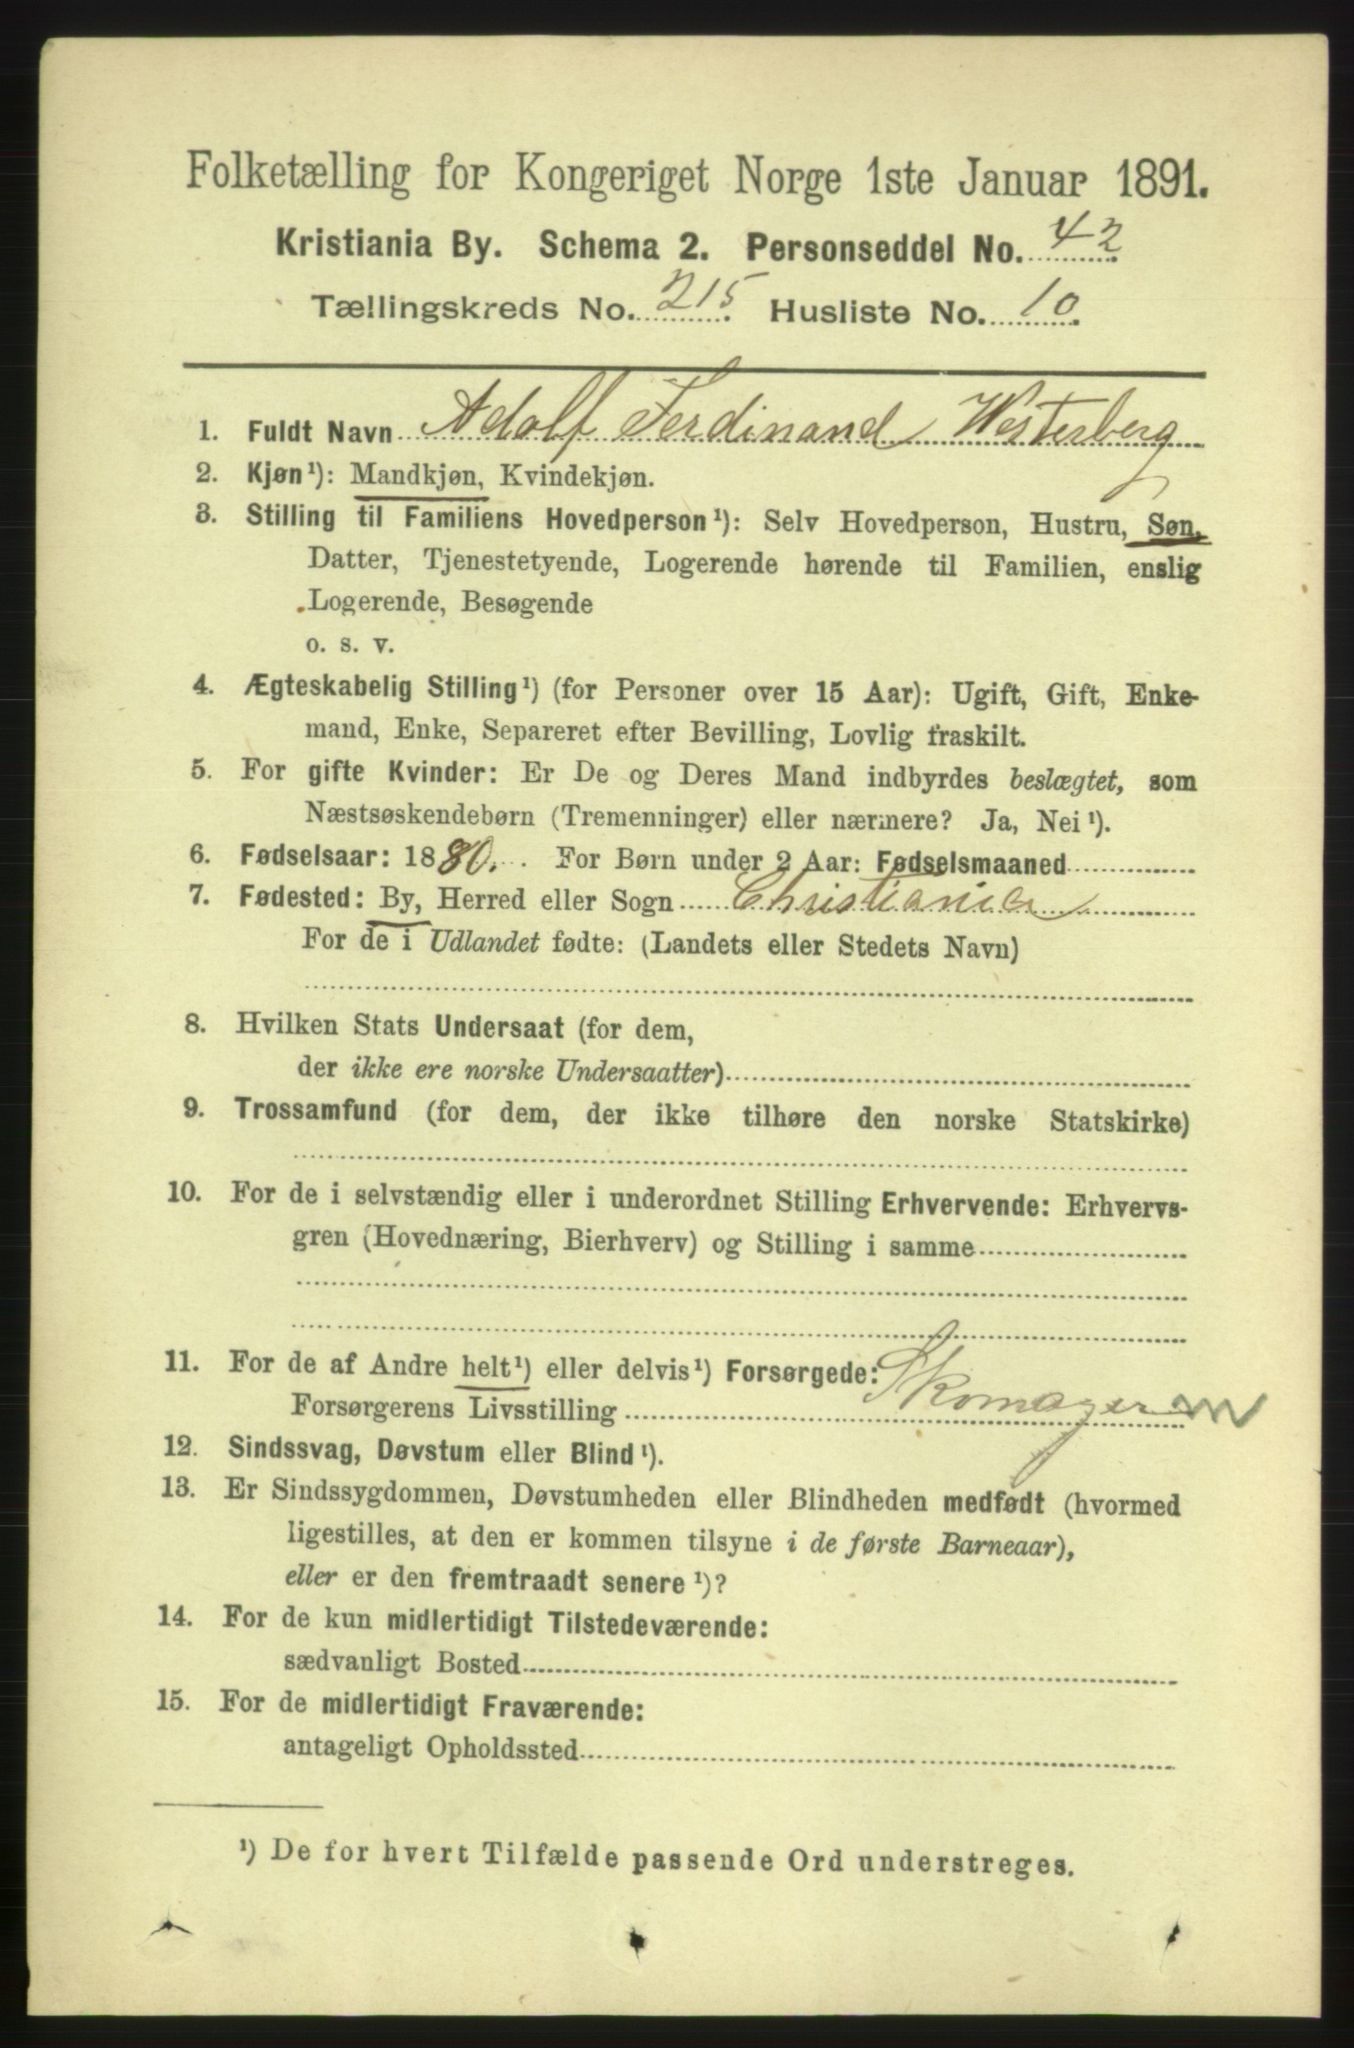 Folketælling for Kongeriget Norge 1ste Januar 1891.
Kristiania By. Schema 2. Personseddel No. 42
Tællingskreds No. 215. Husliste No. 10.
1. Fuldt Navn Adolf Ferdinand Westerberg
2. Kjøn¹): Mandkjøn, Kvindekjøn.
3. Stilling til Familiens Hovedperson¹): Selv Hovedperson, Hustru, Søn,
Datter, Tjenestetyende, Logerende hørende til Familien, enslig
Logerende, Besøgende
o. s. v.
4. Ægteskabelig Stilling¹) (for Personer over 15 Aar): Ugift, Gift, Enke-
mand, Enke, Separeret efter Bevilling, Lovlig fraskilt.
5. For gifte Kvinder: Er De og Deres Mand indbyrdes beslægtet, som
Næstsøskendebørn (Tremenninger) eller nærmere? Ja, Nei¹).
6. Fødselsaar: 1880. For Børn under 2 Aar: Fødselsmaaned
7. Fødested: By, Herred eller Sogn Christiania
For de i Udlandet fødte: (Landets eller Stedets Navn)
8. Hvilken Stats Undersaat (for dem,
der ikke ere norske Undersaatter)
9. Trossamfund (for dem, der ikke tilhøre den norske Statskirke)
10. For de i selvstændig eller i underordnet Stilling Erhvervende: Erhvervs-
gren (Hovednæring, Bierhverv) og Stilling i samme
11. For de af Andre helt¹) eller delvis¹) Forsørgede:
Forsørgerens Livsstilling Skomager m
12. Sindssvag, Døvstum eller Blind¹).
13. Er Sindssygdommen, Døvstumheden eller Blindheden medfødt (hvormed
ligestilles, at den er kommen tilsyne i de første Barneaar),
eller er den fremtraadt senere¹)?
14. For de kun midlertidigt Tilstedeværende:
sædvanligt Bosted
15. For de midlertidigt Fraværende:
antageligt Opholdssted
¹) De for hvert Tilfælde passende Ord understreges.